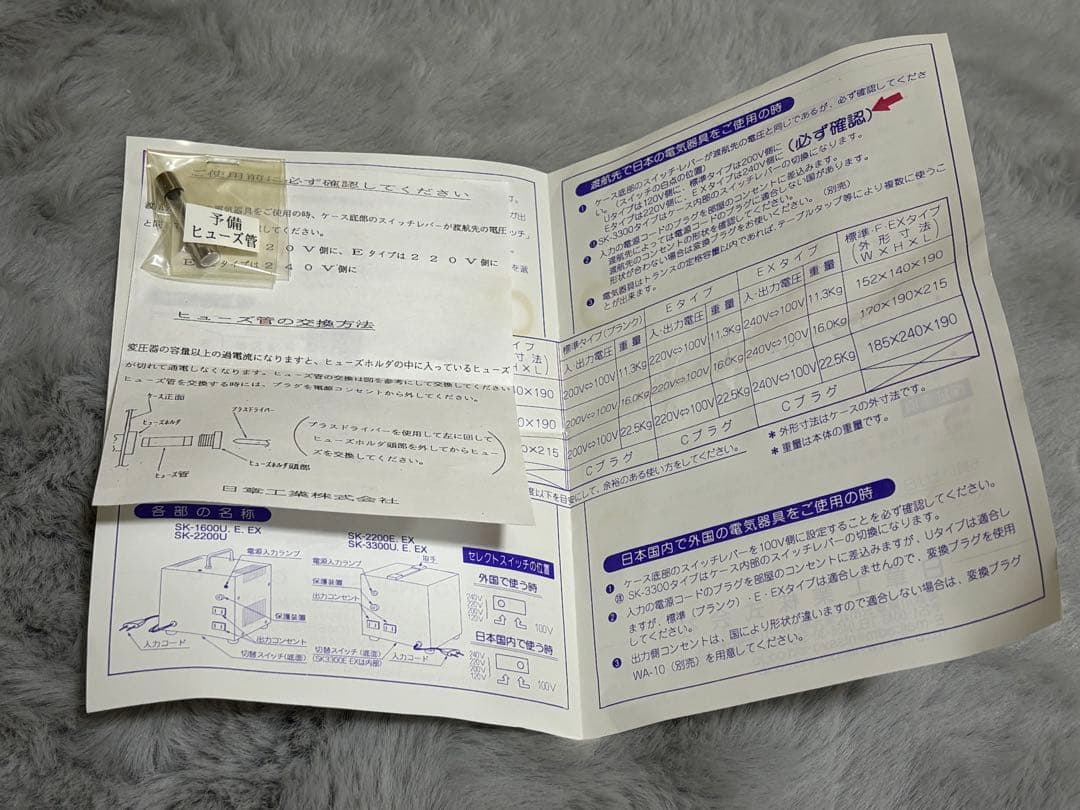 ご使用前に必ず確認してください
予備
ヒューズ管
器具をご使用の時、ケース底部のスイッチレバーが渡航先の電圧
してください。
20V側に、Eタイプは220V側に
240V側に
ヒューズ管の交換方法
変圧器の容量以上の過電流になりますと、ヒューズホルダの中に入っているヒューズ
が切れて通電しなくなります。ヒューズ管の交換は図を参考にして交換してください
ヒューズ管を交換する時には、プラグを電源コンセントから外してください。
ケース正面
ヒューズホルダ
プラスドライバー
ヒューズ管
ヒューズホルダ頭部
プラスドライバーを使用して左に回して
ヒューズホルダ頭部を外してからヒュー
ズを交換してください。
日章工業株式会社
各部の名称
SK-1600U. E. EX
SK-2200U
SK-2200E. EX
SK-3300U. E. EX
電源入力ランプ
保護装置
出力コンセント
切替スイッチ(底面)
入力コード
電源入力ランプ
把手
保護装置
出力コンセント
切替スイッチ(底面)
(SK3300E EXは内部)
入力コード
セレクトスイッチの位置
外国で使う時
240V
220V
200V
120V
100V
日本国内で使う時
240V
220V
200V
120V
100V
渡航先で日本の電気器具をご使用の時
❶ ケース底部のスイッチ・レバーが渡航先の電圧と同じであるか、必ず確認してくださ
い。(スイッチの白点の位置)
Uタイプは120V側に、標準タイプは200V側に
Eタイプは220V側に、EXタイプは240V側に
(必ず確認)
SK-3300タイプはケース内部のスイッチレバーの切換になります。
❷ 入力の電源コードのプラグを部屋のコンセントに差込みます。
渡航先によっては電源コードのプラグに適合しない国があります。
渡航先のコンセントの形状を確認してください。
形状が合わない場合は変換プラグをお使いください。(別売)
❸ 電気器具はトランスの定格容量以内であれば、テーブルタップ等により複数に使うこ
とが出来ます。
標準タイプ(ブランク) Eタイプ EXタイプ 標準・F・EXタイプ
入・出力電圧 重量 入・出力電圧 重量 入・出力電圧 重量 (外形寸法) W×H×L
200V⇔100V 11.3Kg 220V⇔100V 11.3Kg 240V⇔100V 11.3Kg 152×140×190
200V⇔100V 16.0Kg 220V⇔100V 16.0Kg 240V⇔100V 16.0Kg 170×190×215
200V⇔100V 22.5Kg 220V⇔100V 22.5Kg 240V⇔100V 22.5Kg 185×240×190
Cプラグ Cプラグ Cプラグ
度以下を目安にして、余裕のある使い方をしてください。
*外形寸法はケースの外寸法です。
*重量は本体の重量です。
日本国内で外国の電気器具をご使用の時
❶ ケース底部のスイッチレバーを100V側に設定することを必ず確認してください。
㊟ SK-3300タイプはケース内部のスイッチレバーの切換になります。
❷ 入力の電源コードのプラグを部屋のコンセントに差込みますが、Uタイプは適合し
ますが、標準(ブランク)・E・EXタイプは適合しませんので、変換プラグを使用
してください。
❸ 出力側コンセントは、国により形状が違いますので適合しない場合は、変換プラグ
WA-10(別売)を用意してください。